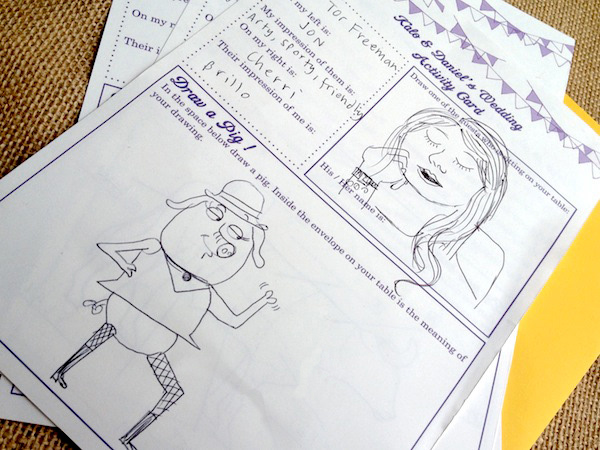 & Daniel's Wedding
Activity Card
my left is:
Tor Freeman
My impression of them is:
JON
Arty, sporty, friendly
On my right is:
Cherri
Their impression of me is:
Brillo
Draw one of the guests sitting on your table:
His / Her name is:
Draw a Pig!
In the space below draw a pig. Inside the envelope on your table is the meaning of
your drawing.